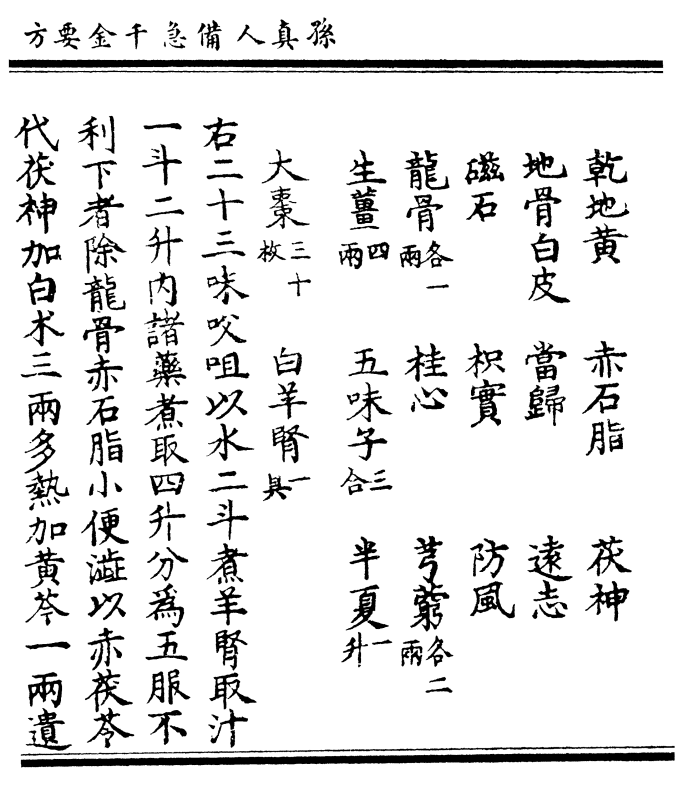 孫真人備急千金要方
乾地黃 赤石脂 茯神
地骨白皮 當歸 遠志
磁石 枳實 防風
龍骨各一兩 桂心 芎藭各二兩
生薑四兩 五味子三合 半夏一升
大棗三十枚 白羊腎一具
右二十三味㕮咀以水二斗煮羊腎取汁
一斗二升內諸藥煮取四升分爲五服不
利下者除龍骨赤石脂小便澁以赤茯苓
代茯神加白术三兩多熱加黃芩一兩遺